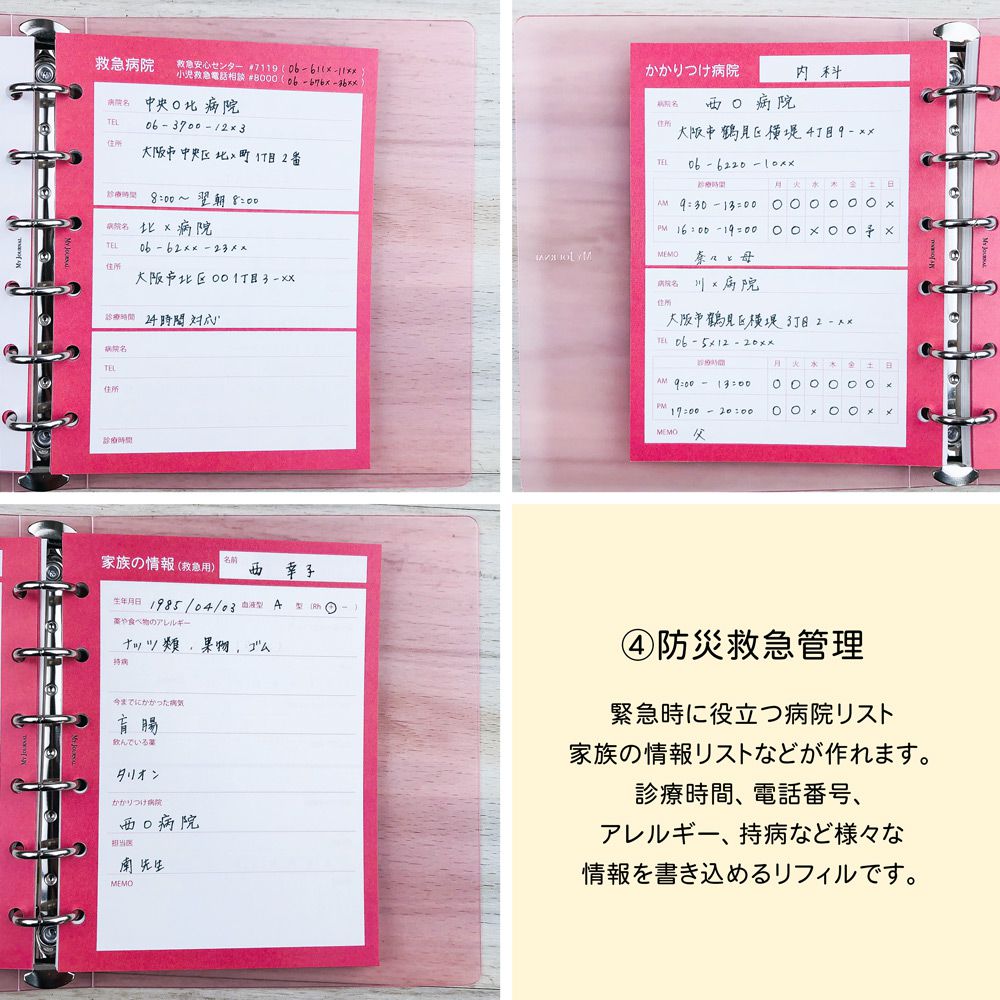 救急病院
救急安心センター #7119 ( 06-611×-11×× )
小児救急電話相談 #8000 ( 06-676×-36×× )
病院名 中央〇北病院
TEL 06-3700-12×3
住所 大阪市中央区北×町1丁目2番
診療時間 8:00〜翌朝8:00
病院名 北×病院
TEL 06-62××-23××
住所 大阪市北区〇〇1丁目3-××
診療時間 24時間対応
病院名
TEL
住所
診療時間
My Journal
かかりつけ病院 内科
病院名 西〇病院
住所 大阪市鶴見区横堤4丁目9-××
TEL 06-6220-10××
診療時間 月 火 水 木 金 土 日
AM 9:30-13:00 〇 〇 〇 〇 〇 〇 ×
PM 16:00-19:00 〇 〇 × 〇 〇 予 ×
MEMO 奈々と母
病院名 川×病院
住所 大阪市鶴見区横堤3丁目2-××
TEL 06-5×12-20××
診療時間 月 火 水 木 金 土 日
AM 9:00-13:00 〇 〇 〇 〇 〇 〇 ×
PM 17:00-20:00 〇 〇 × 〇 〇 × ×
MEMO 父
My Journal
My Journal
My Journal
家族の情報(救急用) 名前 西 幸子
生年月日 1985/04/03 血液型 A 型 (Rh + − )
薬や食べ物のアレルギー
ナッツ類、果物、ゴム
持病
今までにかかった病気
盲腸
飲んでいる薬
タリオン
かかりつけ病院
西〇病院
担当医
南先生
MEMO
My Journal
My Journal
④防災救急管理
緊急時に役立つ病院リスト
家族の情報リストなどが作れます。
診療時間、電話番号、
アレルギー、持病など様々な
情報を書き込めるリフィルです。